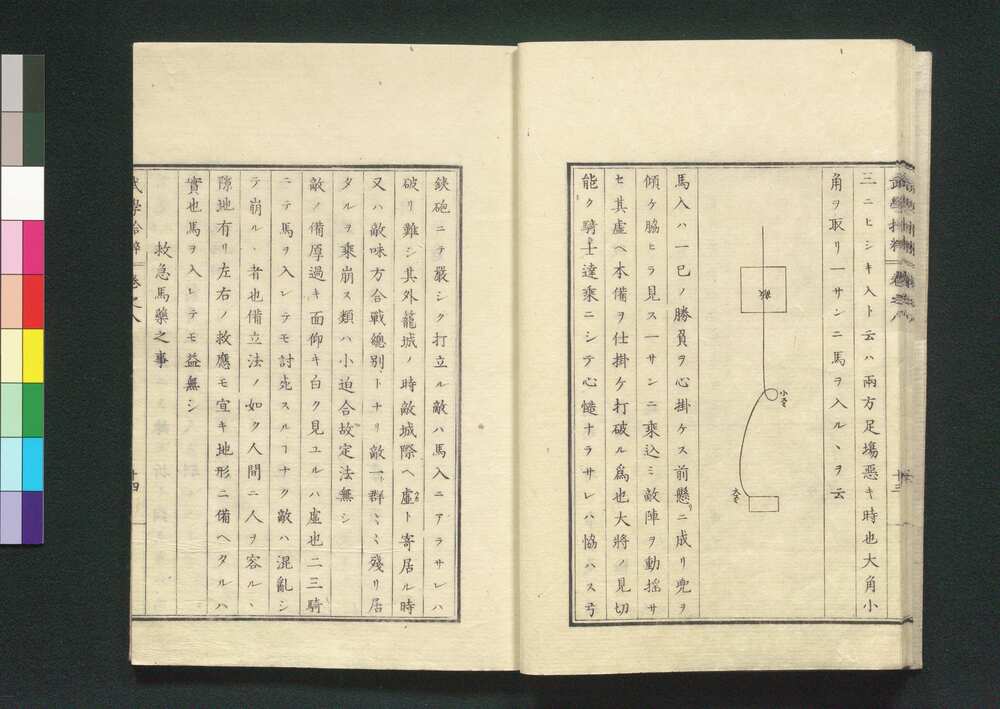 三ニヒシキ入ト云ハ兩方足塲惡キ時也大角小
角ヲ取リ一サンニ馬ヲ入ル丶ヲ云
敵
小角
大角
馬入ハ一已ノ勝負ヲ心掛ケス前懸リニ成リ兜ヲ
傾ケ脇ヒラ見ス一サンニ乘込ミ敵陣ヲ動搖サ
セ其虛ヘ本備ヲ仕掛ケ打破ル爲也大將ノ見切
能ク騎士達乘ニシテ心慥ナラサレハ恊ハス弓
鉄砲ニテ嚴シク打立ル敵ハ馬入ニアラサレハ
破リ難シ其外籠城ノ時敵城際ヘ虛ト寄居ル時
又ハ敵味方合戰總別トナリ敵一群ミミ殘リ居
タルヲ乘崩ス類ハ小迫合故定法無シ
敵ノ備厚過キ面仰キ白ク見ユルハ虛也二三騎
ニテ馬ヲ入レテモ討死スルヿナク敵ハ混亂シ
テ崩ル丶者也備立法ノ如ク人間ニ人ヲ容ル丶
隙地有リ左右ノ救應モ宣キ地形ニ備ヘタルハ
實也馬ヲ入レテモ益無シ
救急馬藥之事